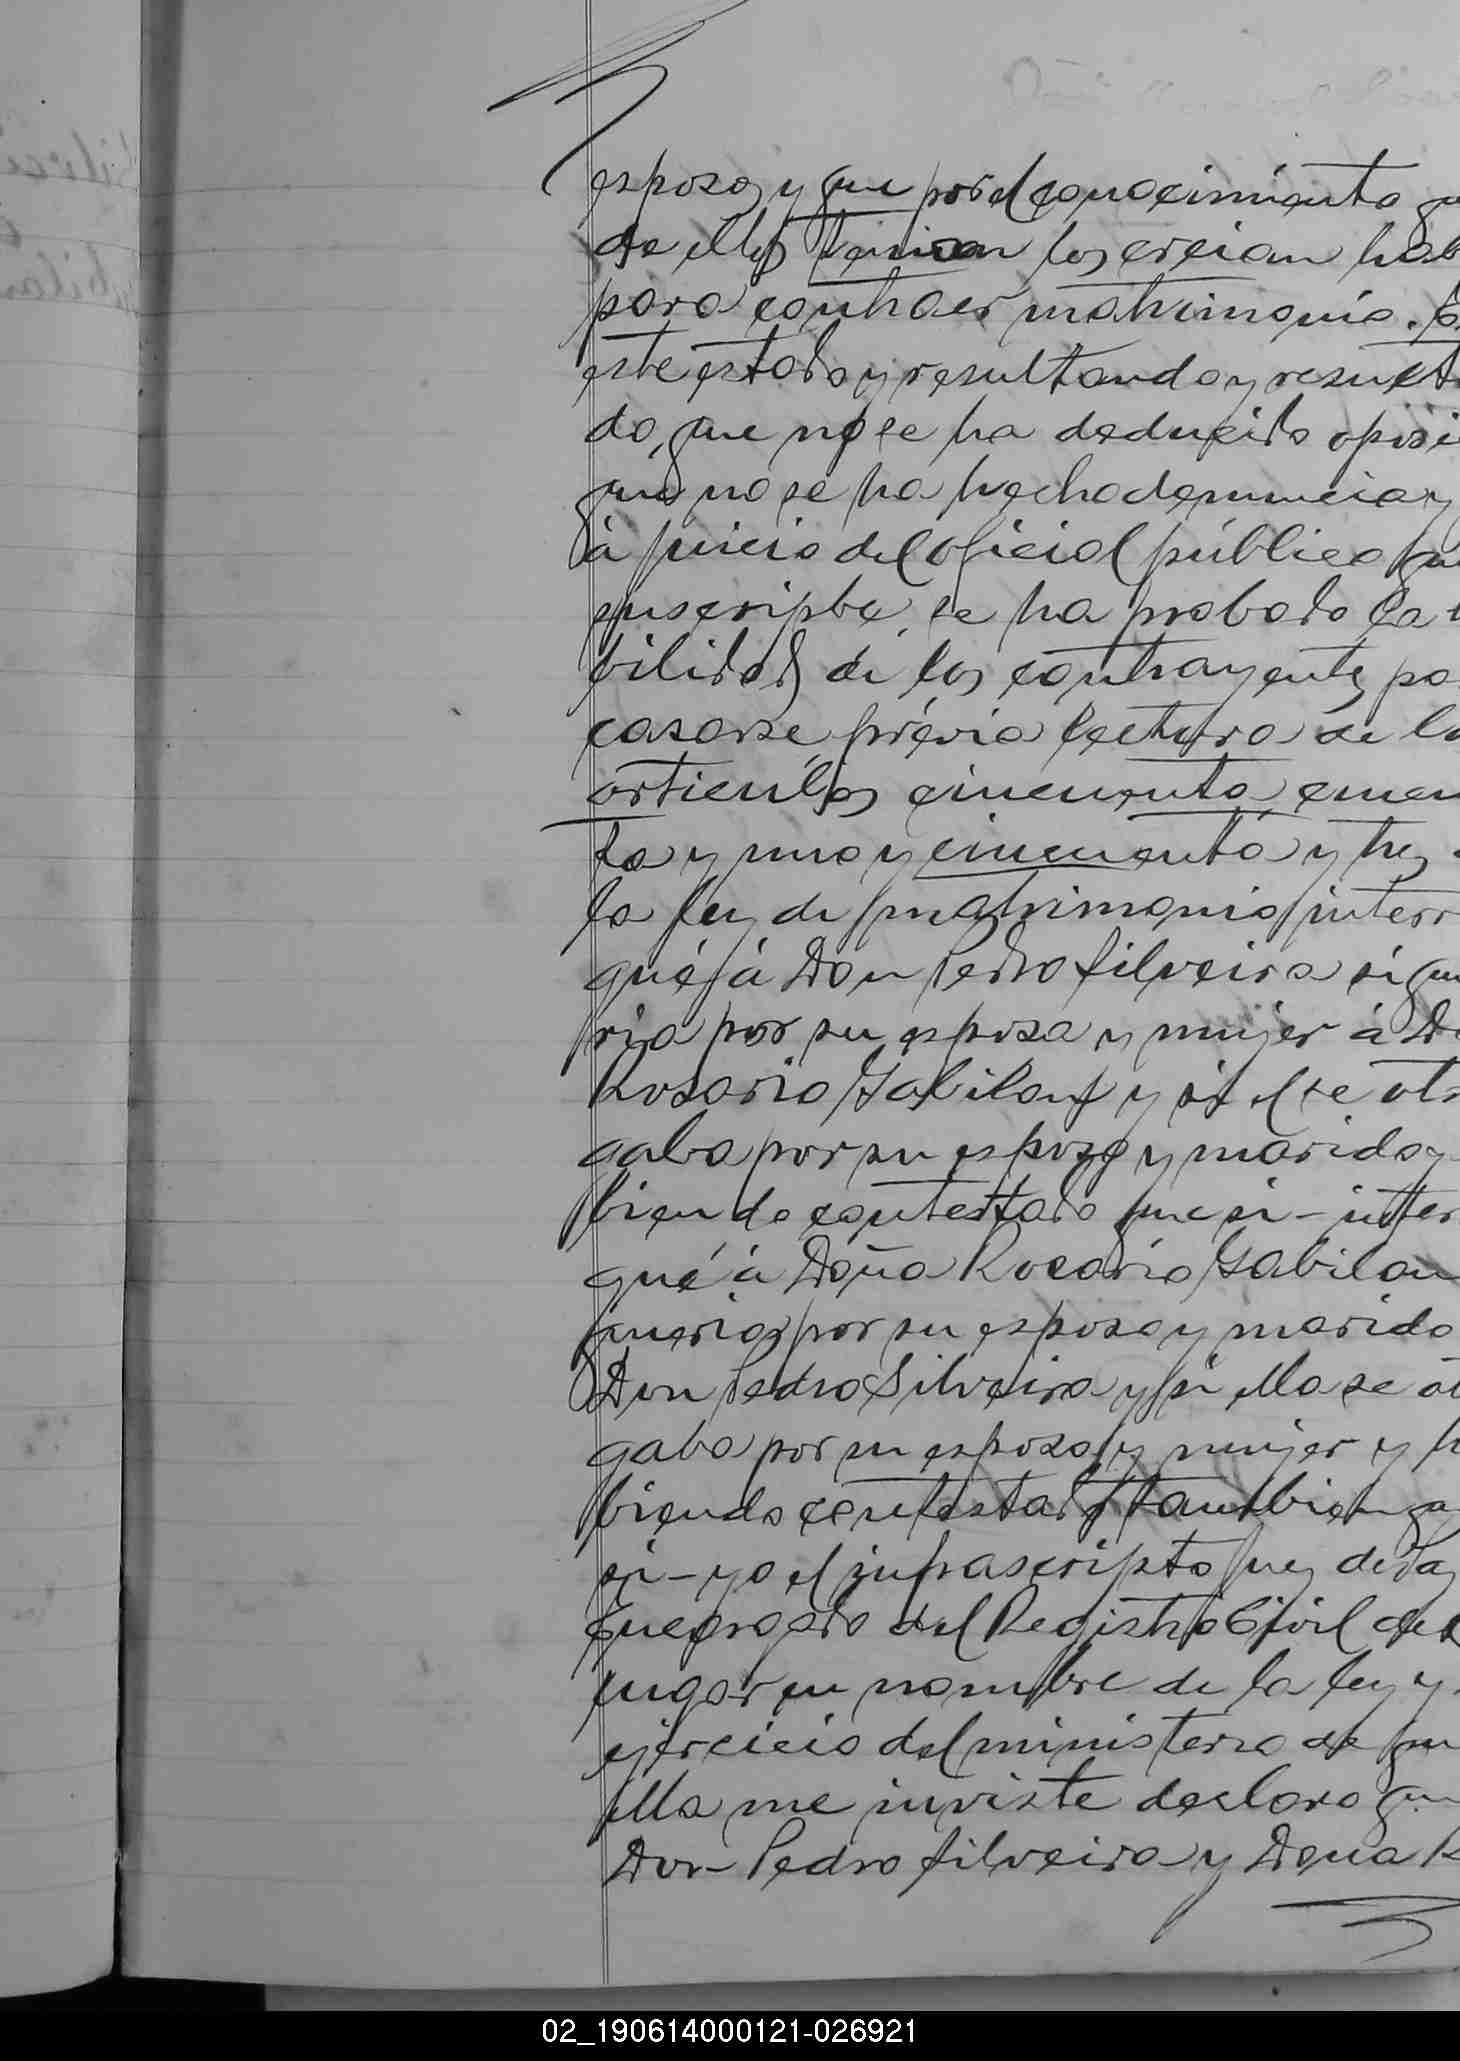 esposo, y que por el conocimiento qu
de ellos tenian los creian hab
para contraer matrimonio. E
este estado y resultando y resul
do, que no se ha deducido oposi
que no se ha hecho denuncia y
á juicio del oficial público qu
suscripbe, se ha probado la
bilidad de los contrayentes pa
casarse prévia lectura de lo
articulos cincuenta, cincuen
ta y uno y cincuenta y tres
la ley de matrimonio interr
gué á Don Pedro Silveira si qu
ria por su esposa y mujer á Do
Rosario Gabilan y si el se oto
gaba por su esposo y marido y
biendo contestado que si - inter
gué á Doña Rosario Gabilan
queria por su esposo y marido
Don Pedro Silveira y si ella se ot
gaba por su esposa y mujer y h
biendo contestado tambien q
si - yo el infrascripto Juez de Paz
encargado del Registro Civil del
lugar en nombre de la ley y
ejercicio del ministerio de qu
ella me inviste declaro qu
Don Pedro Silveira y Doña R
02_190614000121-026921